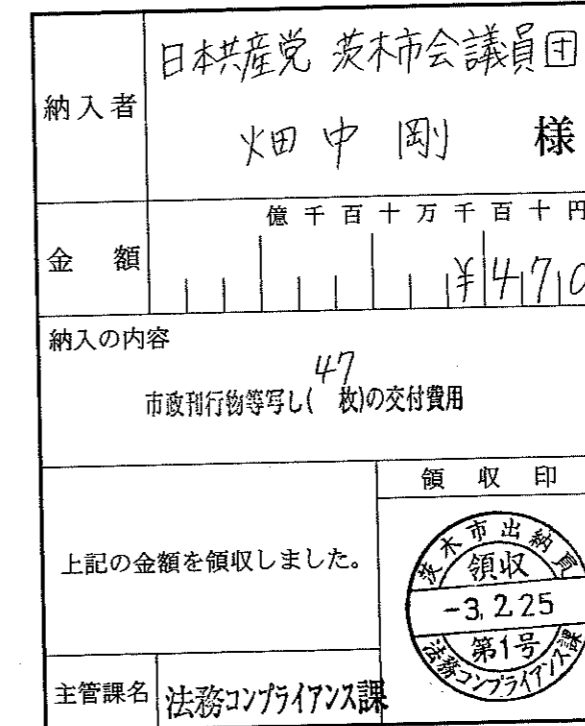 納入者
日本共産党 茨木市会議員団
畑中 剛 様
億千百十万千百十円
金 額
¥470
納入の内容
市政刊行物等写し(47枚)の交付費用
上記の金額を領収しました。
領収印
茨木市出納員
領収
-3.2.25
第1号
法務コンプライアンス課
主管課名 法務コンプライアンス課